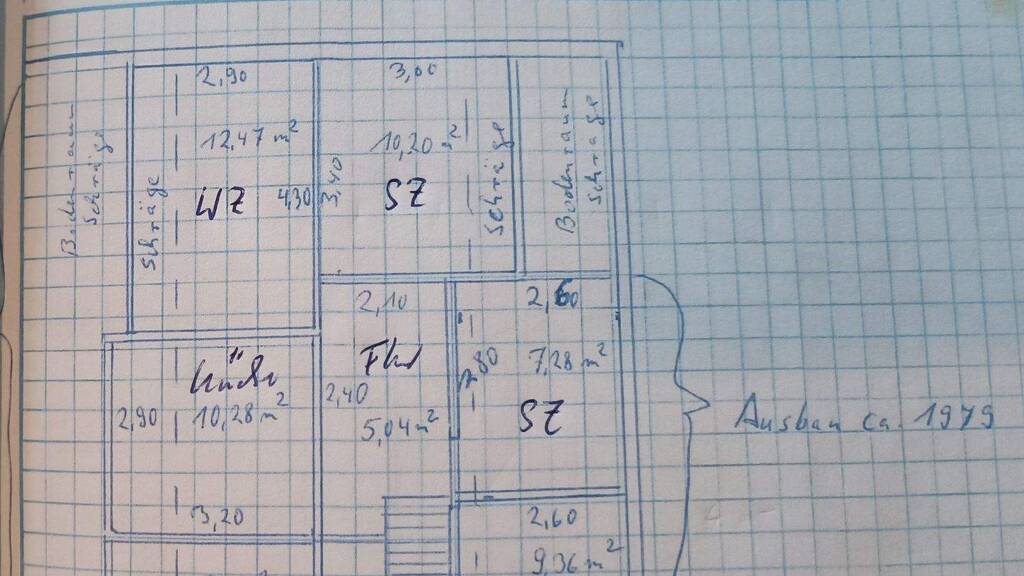 2,90
3,00
Bodenraum
Schräge
Schräge
12,47 m²
WZ
4,30
3,40
10,20 m²
SZ
Schräge
Bodenraum
Schräge
2,10
2,60
Küche
2,90
10,28 m²
3,20
Flur
2,40
5,04 m²
2,80
7,28 m²
SZ
Ausbau ca. 1979
2,60
9,36 m²